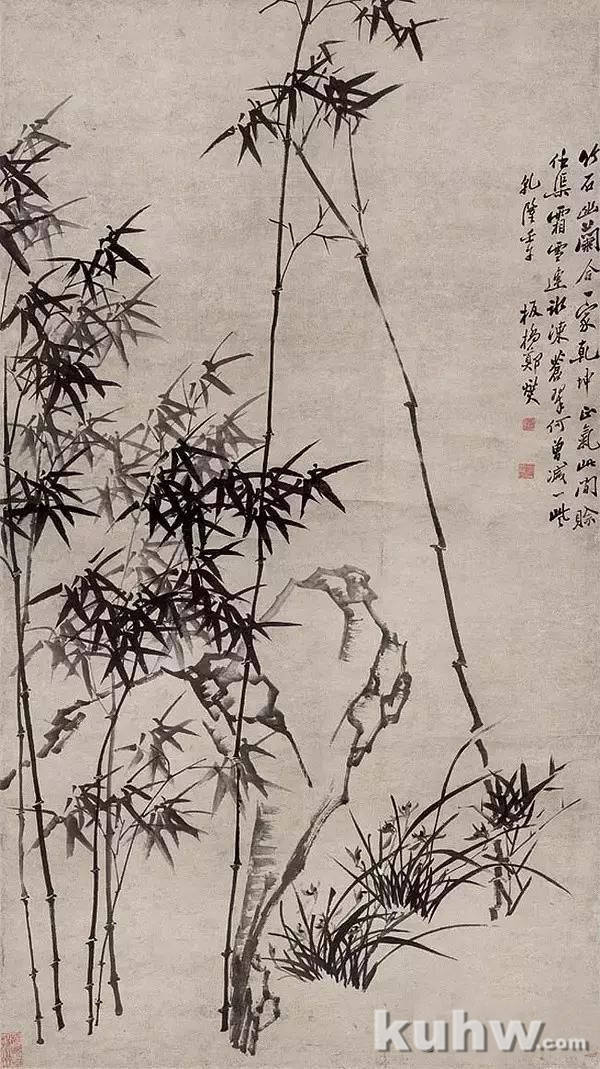 竹石幽蘭合一家乾坤正氣此間賒
任渠霜雪連冰凍蒼翠何曾減一些
乾隆壬午 板橋鄭燮
kuhw.com